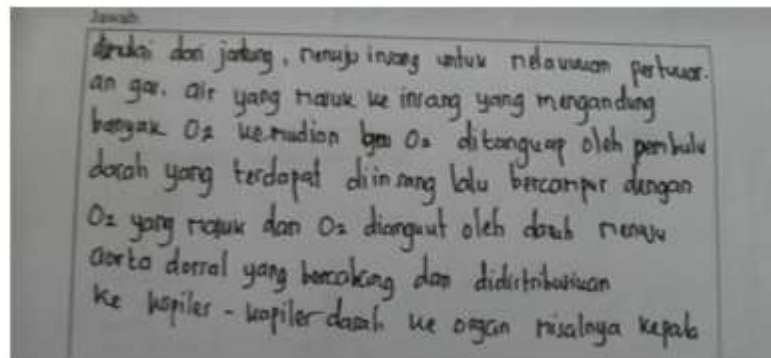 Jawab:
dimulai dari jantung, menuju insang untuk melakukan pertukar-
an gas. air yang masuk ke insang yang mengandung
banyak O2 kemudian O2 ditangkap oleh pembulu
darah yang terdapat diinsang lalu bercampur dengan
O2 yang masuk dan O2 diangkut oleh darah menuju
aorta dorsal yang bercabang dan didistribusikan
ke kapiler - kapiler darah ke organ misalnya kepala